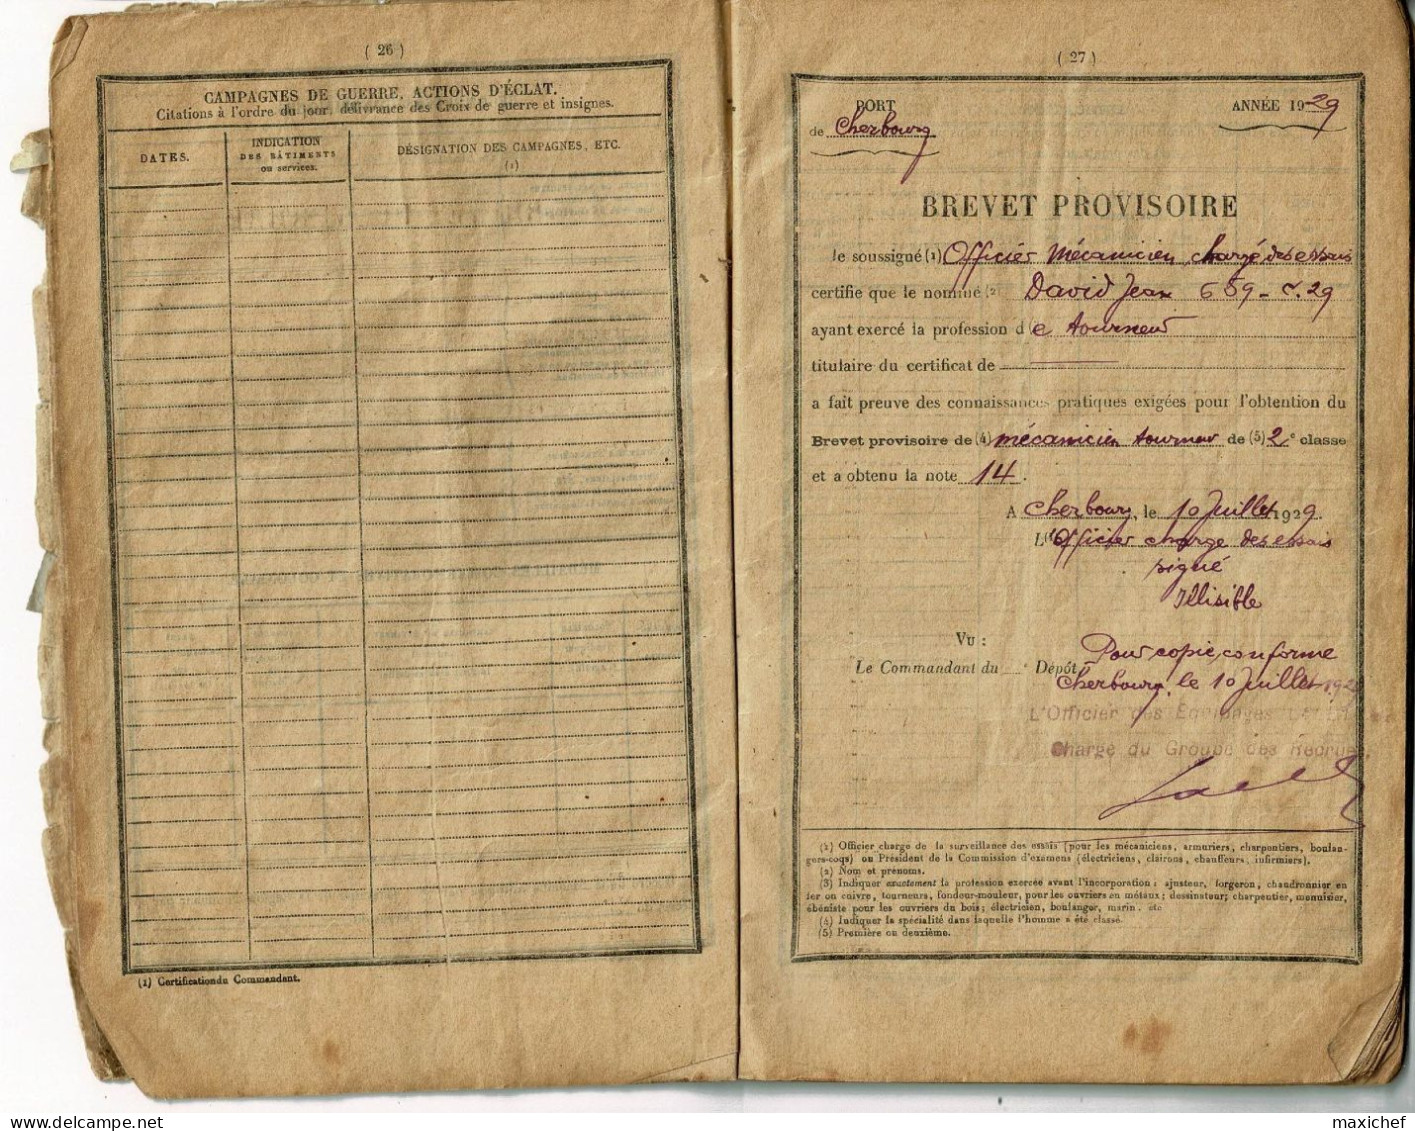 ( 26 )
CAMPAGNES DE GUERRE, ACTIONS D'ÉCLAT.
Citations à l'ordre du jour, délivrance des Croix de guerre et insignes.
DATES.
INDICATION
DES BÂTIMENTS
ou services.
DÉSIGNATION DES CAMPAGNES, ETC.
(1)
(1) Certification du Commandant.
( 27 )
PORT
de Cherbourg
ANNÉE 1929
BREVET PROVISOIRE
le soussigné (1) Officier mécanicien chargé des essais
certifie que le nommé (2 David Jean 659 - C. 29
ayant exercé la profession d(e tourneur
titulaire du certificat de
a fait preuve des connaissances pratiques exigées pour l'obtention du
Brevet provisoire de (4) mécanicien tourneur de (5) 2e classe
et a obtenu la note 14.
A Cherbourg, le 10 Juillet 1929
L'Officier chargé des essais
signé
Illisible
Vu :
Le Commandant du Dépôt
Pour copie conforme
Cherbourg, le 10 Juillet 192
L'Officier des Equipages
Chargé du Groupe des Recrues
(1) Officier chargé de la surveillance des essais (pour les mécaniciens, armuriers, charpentiers, boulan-
gers-coqs) ou Président de la Commission d'examens (électriciens, clairons, chauffeurs, infirmiers).
(2) Nom et prénoms.
(3) Indiquer exactement la profession exercée avant l'incorporation : ajusteur, forgeron, chaudronnier en
fer ou cuivre, tourneurs, fondeur-mouleur, pour les ouvriers en métaux; dessinateur; charpentier, menuisier,
ébéniste pour les ouvriers du bois; électricien, boulanger, marin, etc
(4) Indiquer la spécialité dans laquelle l'homme a été classé.
(5) Première ou deuxième.
maxichef